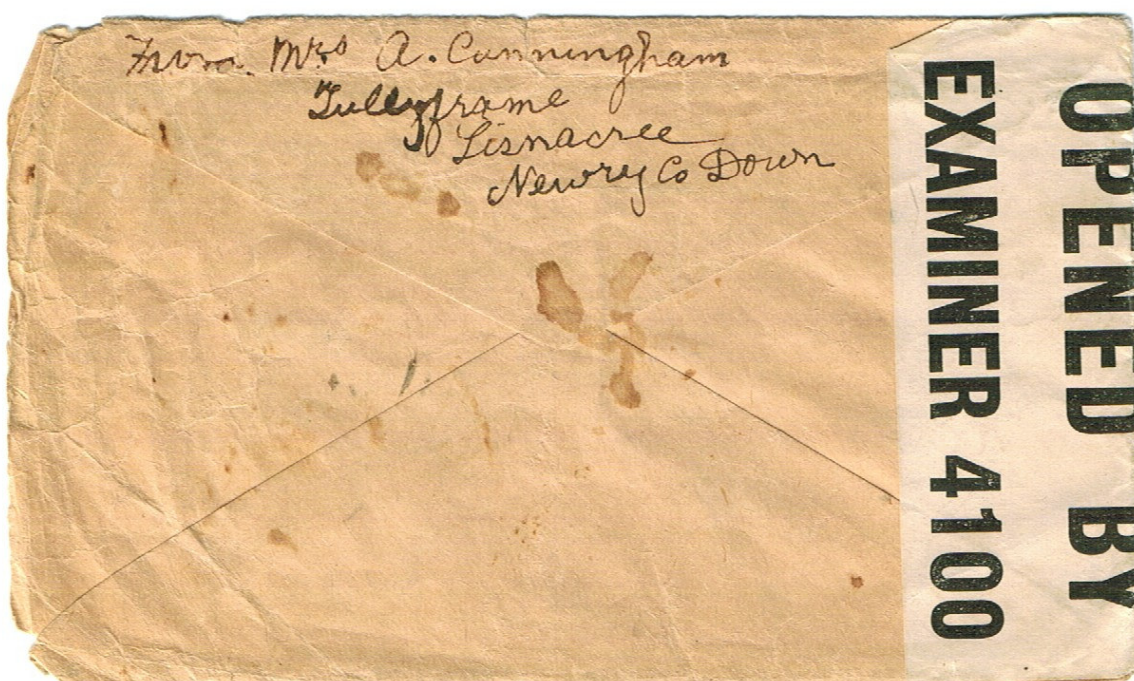 From. Mrs A. Cunningham
Tullyframe
Lisnacree
Newry Co Down
OPENED BY
EXAMINER 4100